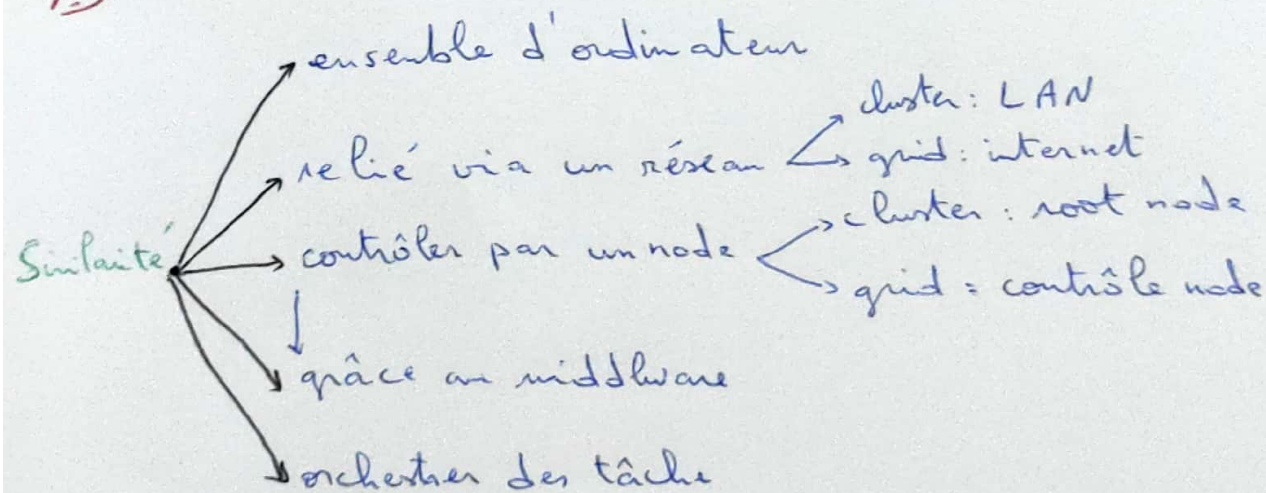 ensemble d'ordinateur
relié via un réseau
cluster : LAN
grid : internet
Similarité
contrôler par un node
cluster : root node
grid : contrôle node
grâce au middlware
orchestrer des tâche